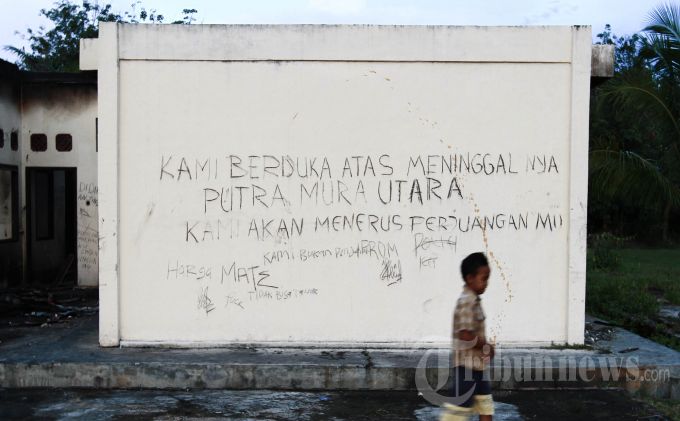 KAMI BERDUKA ATAS MENINGGAL NYA
PUTRA MURA UTARA
KAMI AKAN MENERUS PERJUANGAN MU
KAMI BUKAN
HARGA MATE
TIDAK BISA
Tribunnews.com